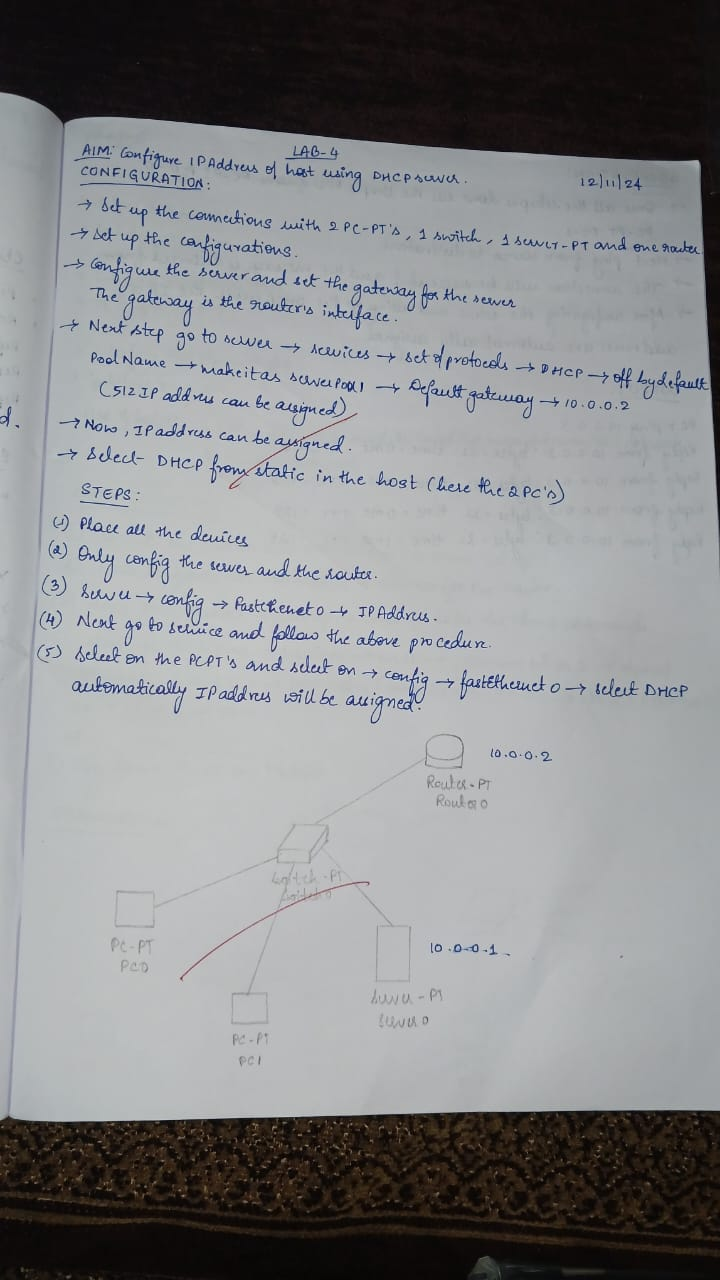 LAB-4
AIM: Configure IP Address of host using DHCP server. 12/11/24
CONFIGURATION:
→ Set up the connections with 2 PC-PT's, 1 switch, 1 server-PT and one router.
→ Set up the configurations.
→ Configure the server and set the gateway for the server
The gateway is the router's interface.
→ Next step go to server → services → set of protocols → DHCP → off by default
Pool Name → make it as serverpool1 → Default gateway → 10.0.0.2
(512 IP address can be assigned)
→ Now, IP address can be assigned.
→ Select DHCP from static in the host (here the 2 PC's)
STEPS:
(1) Place all the devices
(2) Only config the server and the router.
(3) Server → config → FastEthenet 0 → IP Address.
(4) Next go to service and follow the above procedure.
(5) Select on the PCPT's and select on → config → fastEthernet 0 → select DHCP
automatically IP address will be assigned.
10.0.0.2
Router-PT
Router 0
Switch-PT
Switch 0
PC-PT
PC0
10.0.0.1
Server-PT
Server 0
PC-PT
PC1
d.